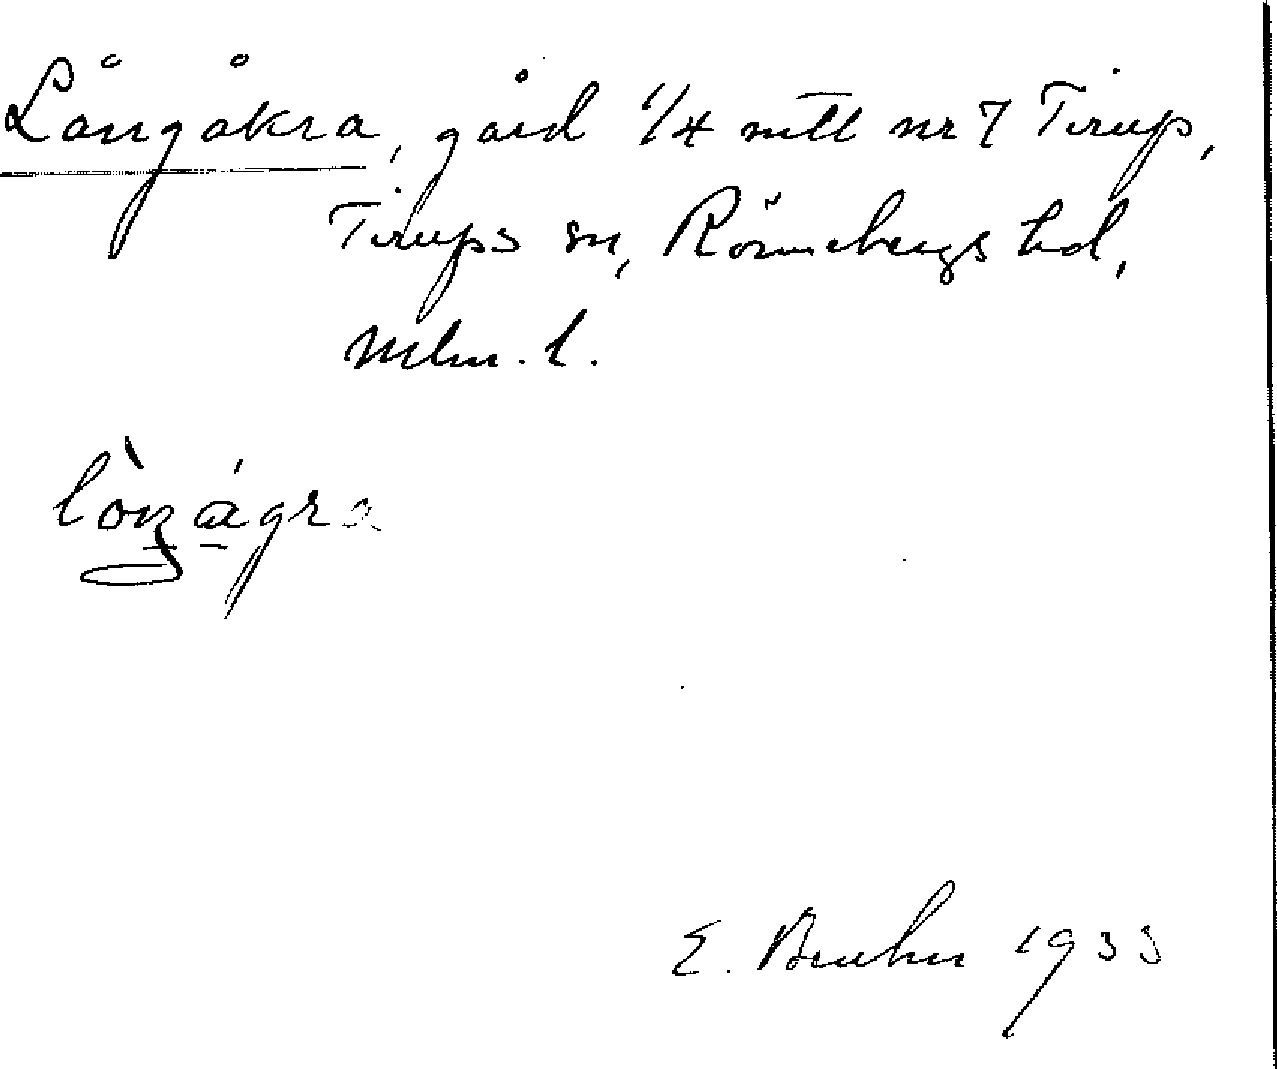 Långåkra, gård 1/4 mtl nr 7 Tirup,
Tirups sn, Rönnebergs hd,
Mlm. l.
E. Bruhn 1933